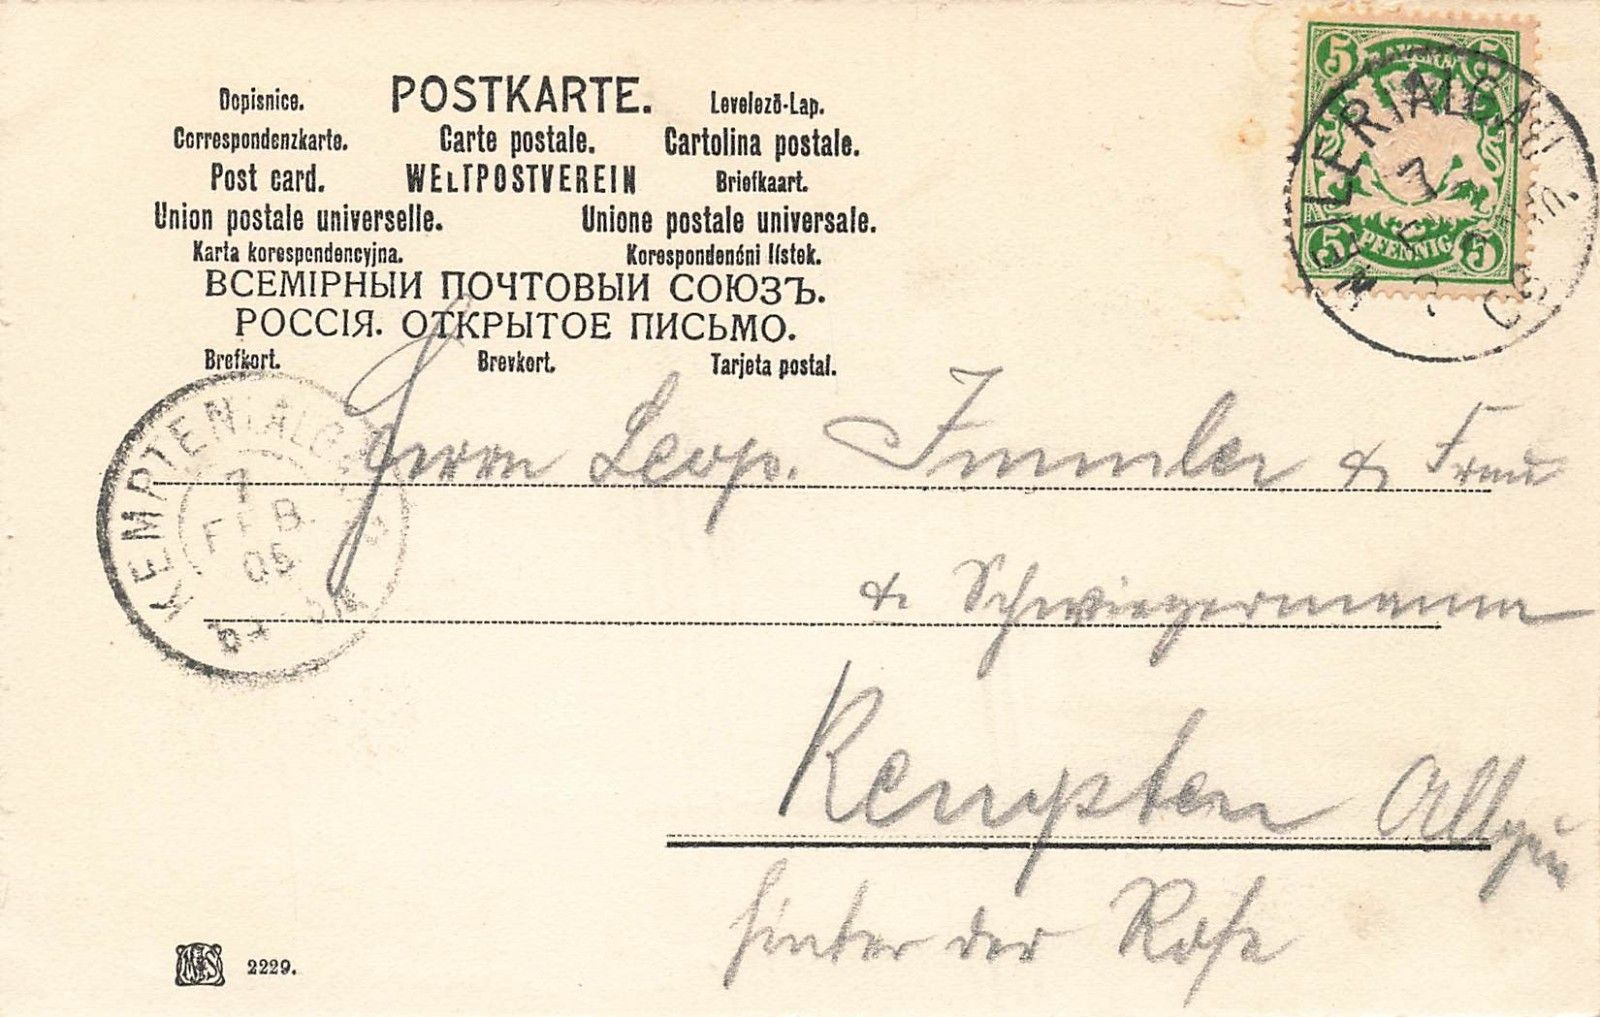 Dopisnice. POSTKARTE. Levelező-Lap.
Correspondenzkarte. Carte postale. Cartolina postale.
Post card. WELTPOSTVEREIN Briefkaart.
Union postale universelle. Unione postale universale.
Karta korespondencyjna. Korespondenčni listek.
ВСЕМІРНЫИ ПОЧТОВЫИ СОЮЗЪ.
РОССІЯ. ОТКРЫТОЕ ПИСЬМО.
Brefkort. Brevkort. Tarjeta postal.
BAYERN
5 5
5 PFENNIG 5
KEMPTEN ALG
7
FEB.
06
Herrn Leop. Immler & Frau
& Schwiegermama
Kempten Allgäu
hinter der Rose
2229.